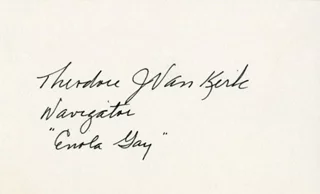 Theodore J Van Kirk
Navigator
"Enola Gay"